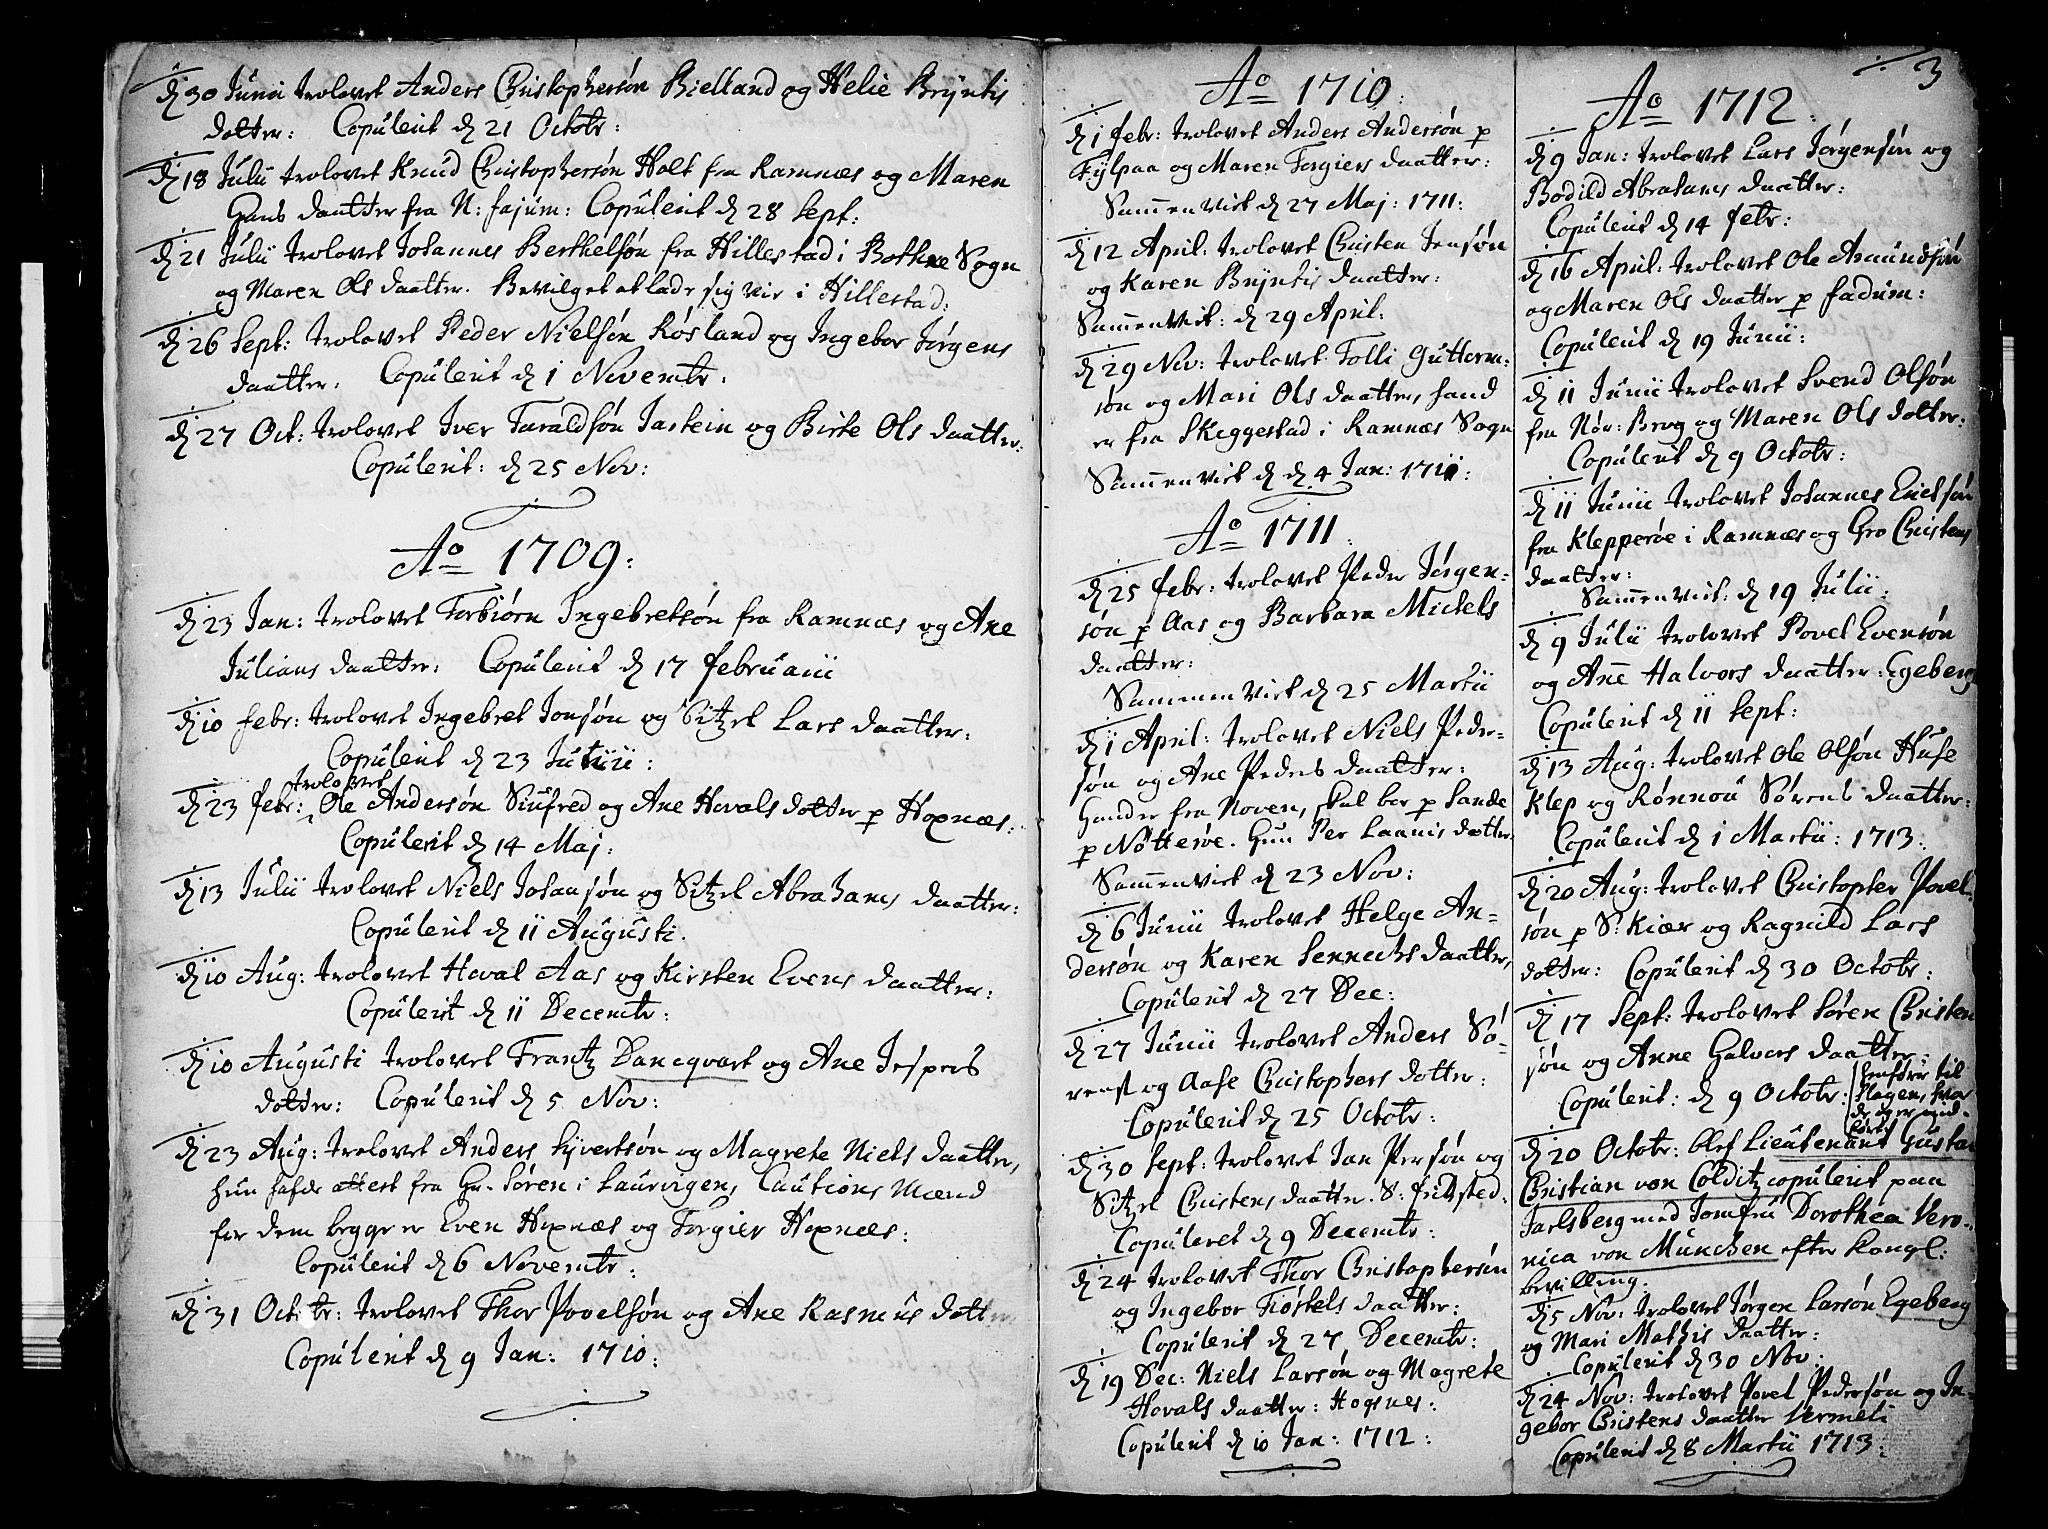 d 30 Junii trolovet Anders Christophersøn Bielland og Helie Bryntis
dotter: Copulerit d 21 Octobr:
d 18 Julii trolovet Knud Christophersøn Holt fra Ramnæs og Maren
Hans daatter fra N: fajum: Copulerit d 28 Sept:
d 21 Julii trolovet Johannes Berthelsøn fra Hillestad i Bothne Sogn
og Maren Ols daatter. Bevilget at lade sig vie i Hillestad:
d 26 Sept: trolovet Peder Nielsøn Røsland og Ingebor Jørgens
daatter: Copulerit d 1 Novembr:
d 27 Oct: trolovet Iver Taraldsøn Jastein og Birte Ols daatter:
Copulerit: d 25 Nov:
Ao 1709:
d 23 Jan: trolovet Torbiørn Ingebretsøn fra Ramnæs og Ane
Julians daatter: Copulerit d 17 februarii
d 10 febr: trolovet Ingebret Jonsøn og Sitzel Lars daatter:
Copulerit d 23 Junii:
trolovet
d 23 febr: Ole Andersøn Siufred og Ane Hovals dotter p Hoxnæs:
Copulerit d 14 Maj:
d 13 Julii trolovet Niels Johansøn og Sitzel Abrahams daatter:
Copulerit d 11 Augusti.
d 10 Aug: trolovet Hoval Aas og Kirsten Evens daatter:
Copulerit d 11 Decembr:
d 10 Augusti trolovet Frantz Dancqvart og Ane Jespers
dotter: Copulerit d 5 Nov:
d 23 Aug: trolovet Anders Syvertsøn og Magrete Niels daatter,
hun hafde attest fra Hr. Søren i Laurvigen, Cautions Mænd
for dem begge er Even Hoxnæs og Torgier Hoxnæs:
Copulerit d 6 Novembr:
d 31 Octobr: trolovet Thor Povelsøn og Ane Rasmus dotter
Copulerit d 9 Jan: 1710:
Ao 1710:
d 1 febr: trolovet Anders Andersøn p
Fylpaa og Maren Torgiers daatter:
Sammenviet d 27 Maj: 1711:
d 12 April: trolovet Christen Jensøn
og Karen Bryntis daatter:
Sammenviet: d 29 April:
d 29 Nov: trolovet Tolli Gutterm-
søn og Mari Ols daatter, hand
er fra Skeggestad i Ramnæs Sogn
Sammenviet d d 4 Jan: 1711:
Ao 1711
d 25 febr: trolovet Peder Jørgen-
søn p Aas og Barbara Mickels
daatter:
Sammenviet d 25 Martii
d 1 April: trolovet Niels Peder-
søn og Ane Peders daatter:
Hander fra Noven, skal boe p Sande
p Nøtterøe. Hun Per Launis dotter
Sammenviet d 23 Nov:
d 6 Junii trolovet Helge An-
dersøn og Karen Sennechs daatter,
Copulerit d 27 Dec:
d 27 Junii trolovet Anders Sø-
renss og Aase Christophers dotter:
Copulerit d 25 Octobr:
d 30 Sept: trolovet Jan Persøn og
Sitzel Christens daatter. S: friksted.
Copuleret d 9 Decembr:
d 24 trolovet Thor Christophersøn
og Ingebor Tiøstels daatter:
Copulerit d 27 Decembr:
d 19 Dec: Niels Larsøn og Magrete
Hovals daatter: Hogsnes:
Copulerit d 10 Jan: 1712:
3
Ao 1712:
d 9 Jan: trolovet Lars Jørgensøn og
Bodild Abrahams daatter:
Copulerit d 14 febr:
d 16 April: trolovet Ole Amundsøn
og Maren Ols daatter p fadum:
Copulerit d 19 Junii:
d 11 Junii trolovet Svend Olsøn
fra Nør: Brog og Maren Ols dotter:
Copulerit d 9 Octobr:
d 11 Junii trolovet Johannes Erichsøn
fra Klepperøe i Ramnæs og Gro Christens
daatter:
Sammenviet: d 19 Julii:
d 9 Julii trolovet Povel Evensøn
og Ane Halvors daatter: Egeberg
Copulerit d 11 Sept:
d 13 Aug: trolovet Ole Olsøn Huse
Klep og Rønnou Sørens daatter:
Copulerit d 1 Martii: 1713:
d 20 Aug: trolovet Christopher Povel-
søn p S: Kiær og Ragnild Lars
dotter: Copulerit d 30 Octobr:
d 17 Sept: trolovet Søren Christen
søn og Anne Halvors daatter:
Copulerit: d 9 Octobr:
henfører til
Slagen, hvor
de og er ind-
ført
d 20 Octobr: blef Lieutenant Gustav
Christian von Colditz copulerit paa
Jarlsberg med Jomfru Dorothea Vero-
nica von München efter Kongl:
bevilling.
d 5 Nov: trolovet Jørgen Larsøn Egeberg
og Mari Mathis daatter:
Copulerit d 30 Nov:
d 24 Nov: trolovet Povel Pedersøn og In-
gebor Christens daatter Vermeli
Copulerit d 8 Martii 1713: